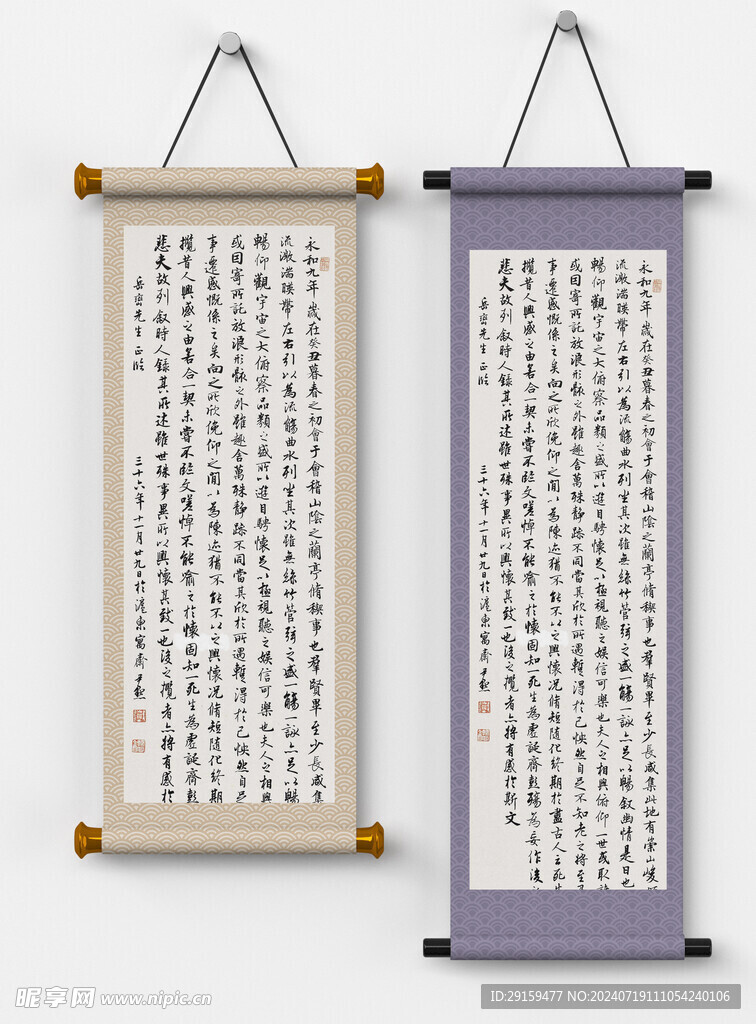 永和九年歲在癸丑暮春之初會于會稽山陰之蘭亭脩禊事也羣賢畢至少長咸集
流激湍暎帶左右引以為流觴曲水列坐其次雖無絲竹管弦之盛一觴一詠亦足以暢
暢仰觀宇宙之大俯察品類之盛所以遊目騁懷足以極視聽之娛信可樂也夫人之相與
或因寄所託放浪形骸之外雖趣舍萬殊靜躁不同當其欣於所遇暫得於己怏然自足
事遷感慨係之矣向之所欣俛仰之間以為陳迹猶不能不以之興懷況脩短隨化終期
攬昔人興感之由若合一契未嘗不臨文嗟悼不能喻之於懷固知一死生為虛誕齊彭
悲夫故列叙時人錄其所述雖世殊事異所以興懷其致一也後之攬者亦將有感於
先生正
三十六年十一月廿九日於滬東寓齋尹默
永和九年歲在癸丑暮春之初會于會稽山陰之蘭亭脩禊事也羣賢畢至少長咸集此地有崇山峻
流激湍暎帶左右引以為流觴曲水列坐其次雖無絲竹管弦之盛一觴一詠亦足以暢叙幽情是日也
暢仰觀宇宙之大俯察品類之盛所以遊目騁懷足以極視聽之娛信可樂也夫人之相與俯仰一世或取諸
或因寄所託放浪形骸之外雖趣舍萬殊靜躁不同當其欣於所遇暫得於己怏然自足不知老之將至
事遷感慨係之矣向之所欣俛仰之間以為陳迹猶不能不以之興懷況脩短隨化終期於盡古人云死生
攬昔人興感之由若合一契未嘗不臨文嗟悼不能喻之於懷固知一死生為虛誕齊彭殤為妄作後
悲夫故列叙時人錄其所述雖世殊事異所以興懷其致一也後之攬者亦將有感於斯文
先生正
三十六年十一月廿九日於滬東寓齋尹默
昵享网 www.nipic.cn
ID:29159477 NO:20240719111054240106